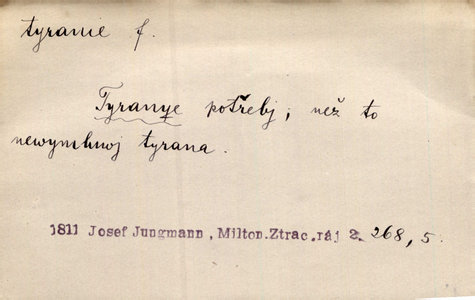 tyranie f.
Tyranye potřebj, než to
newymluwj tyrana.
1811 Josef Jungmann, Milton.Ztrac.ráj 2. 268, 5.